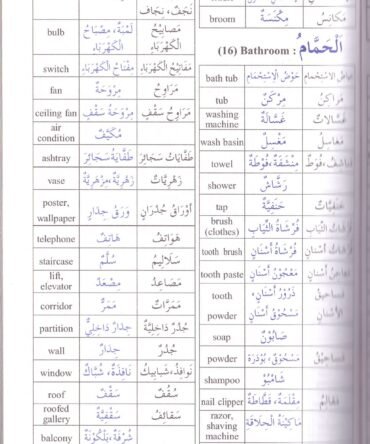 نَجَفٌ، نَجَاف
bulb لَمْبَةٌ، مِصْبَاحُ الْكَهْرَبَاءِ مَصَابِيحُ الْكَهْرَبَاءِ
switch مِفْتَاحُ الْكَهْرَبَاءِ مَفَاتِيحُ الْكَهْرَبَاءِ
fan مِرْوَحَةٌ مَرَاوِحُ
ceiling fan مِرْوَحَةُ سَقْفٍ مَرَاوِحُ سَقْفٍ
air condition مُكَيِّفٌ
ashtray طَفَّايَةُ سَجَائِرَ طَفَّايَاتُ سَجَائِرَ
vase زَهْرِيَّةٌ، مِزْهَرِيَّةٌ زَهْرِيَّاتٌ
poster, wallpaper وَرَقُ جِدَارٍ أَوْرَاقُ جُدْرَانٍ
telephone هَاتِفٌ هَوَاتِفُ
staircase سُلَّمٌ سَلَالِيمُ
lift, elevator مِصْعَدٌ مَصَاعِدُ
corridor مَمَرٌّ مَمَرَّاتٌ
partition جِدَارٌ دَاخِلِيٌّ جُدُرٌ دَاخِلِيَّةٌ
wall جِدَارٌ جُدُرٌ
window نَافِذَةٌ، شُبَّاكٌ نَوَافِذُ، شَبَابِيكُ
roof سَقْفٌ سُقُفٌ
roofed gallery سَقِيفَةٌ سَقَائِفُ
balcony شُرْفَةٌ، بَلْكُونَةٌ
broom مِكْنَسَةٌ مَكَانِسُ
(16) Bathroom : اَلْحَمَّامُ
bath tub حَوْضُ الْاِسْتِحْمَامِ الاِسْتِحْمَامِ
tub مِرْكَنٌ مَرَاكِنُ
washing machine غَسَّالَةٌ غَسَّالَاتٌ
wash basin مَغْسِلٌ مَغَاسِلُ
towel مِنْشَفَةٌ، فُوْطَةٌ فُوَطٌ
shower رَشَّاشٌ
tap حَنَفِيَّةٌ حَنَفِيَّاتٌ
brush (clothes) فُرْشَاةُ الثِّيَابِ الثِّيَابِ
tooth brush فُرْشَاةُ أَسْنَانٍ أَسْنَانٍ
tooth paste مَعْجُوْنُ أَسْنَانٍ أَسْنَانٍ
tooth powder ذَرُوْرُ أَسْنَانٍ، مَسْحُوْقُ أَسْنَانٍ
soap صَابُوْنٌ
powder مَسْحُوْقٌ، بُوْدَرَة
shampoo شَامْبُوْ
nail clipper مِقْلَمَةٌ، قَصَّاصَةٌ
razor, shaving machine مَاكِيْنَةُ الْحِلَاقَةِ